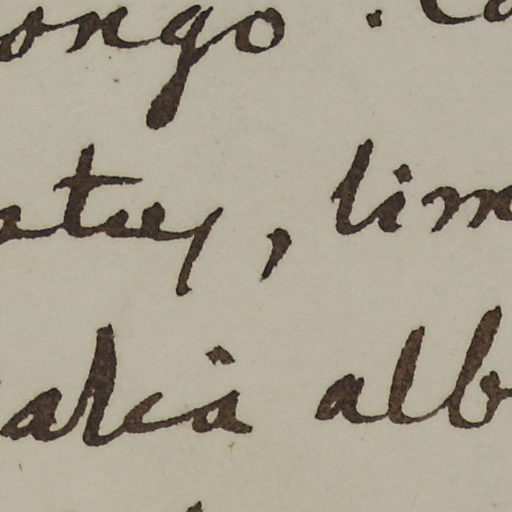 ongo. Co
atus, lim
aria alb